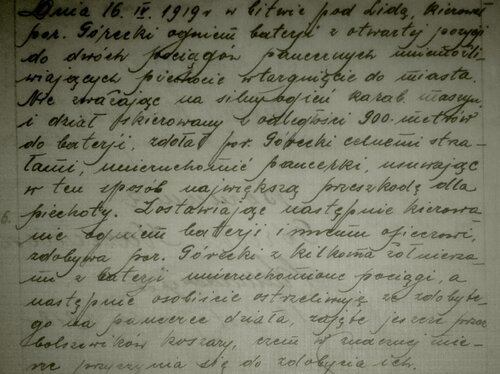 Dnia 16. IV. 1919 r w bitwie pod Lidą, kierował
por. Górecki ogniem baterji z otwartej pozycji
do dwóch pociągów pancernych uniemożli-
wiających piechocie wtargnięcie do miasta.
Nie zważając na silny ogień karab. maszyn.
i dział skierowany z odległości 900 metrów
do baterji, zdołał por. Górecki celnemi strza-
łami, unieruchomić pancerki, usuwając
w ten sposób największą przeszkodę dla
piechoty. Zostawiając następnie kierowa-
6. nie ogniem baterji innemu oficerowi,
zdobywa por. Górecki z kilkoma żołnierza-
mi z baterji unieruchomione pociągi, a
następnie osobiście ostrzeliwuje ze zdobyte-
go na pancerce działa, zajęte jeszcze przez
bolszewików koszary, czem w znacznej mie-
rze przyczynia się do zdobycia ich.